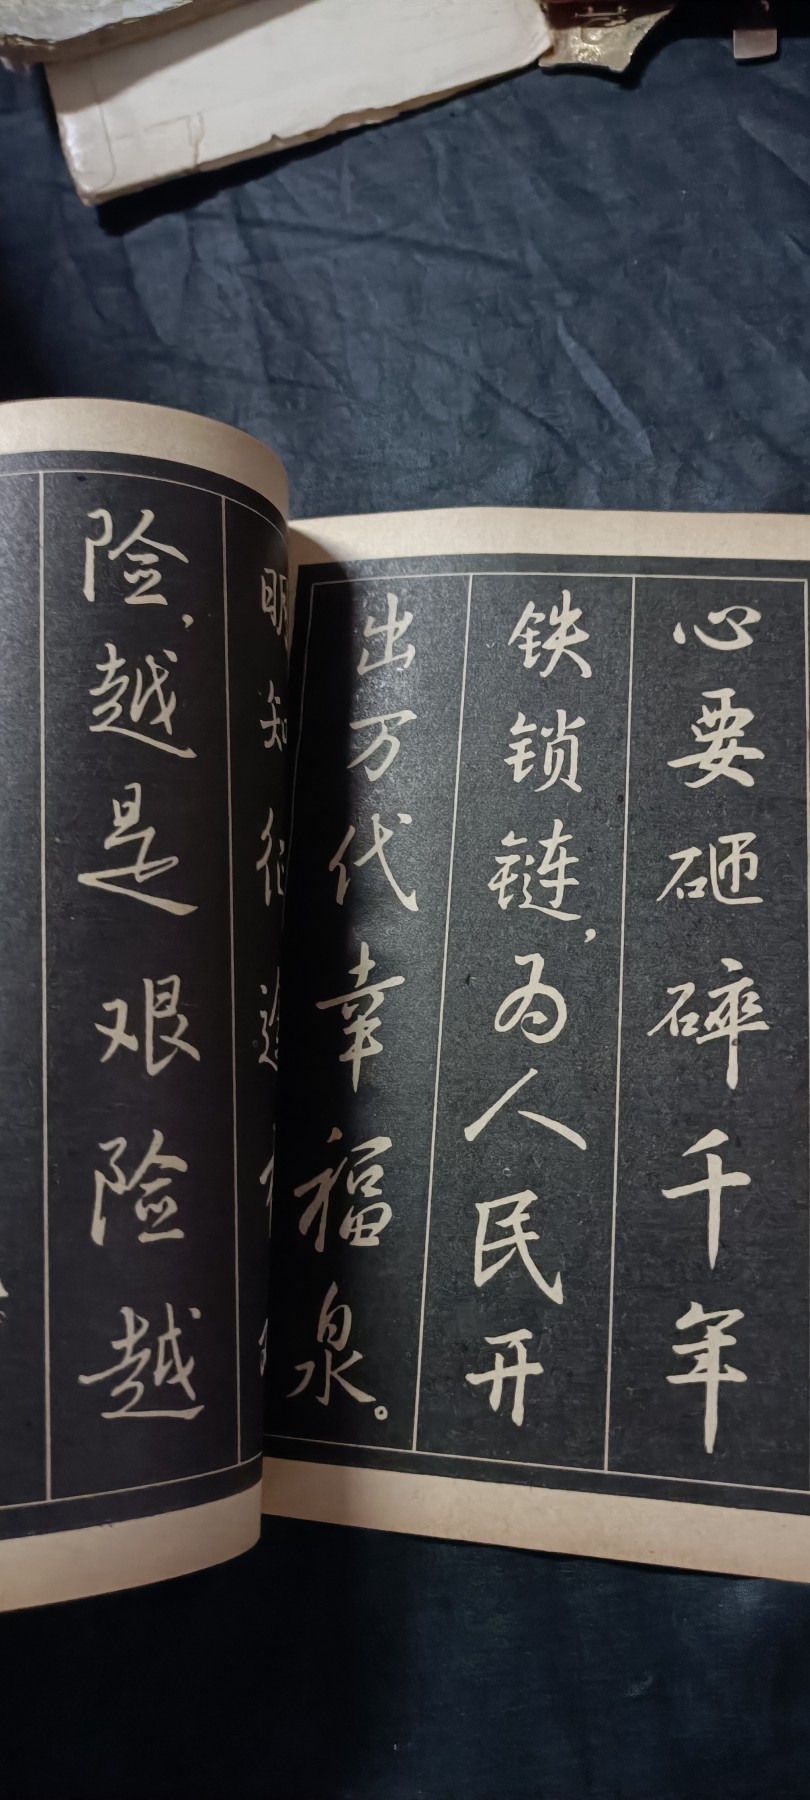 心要砸碎千年
铁锁链，为人民开
出万代幸福泉。
明知征途
险，越是艰险越